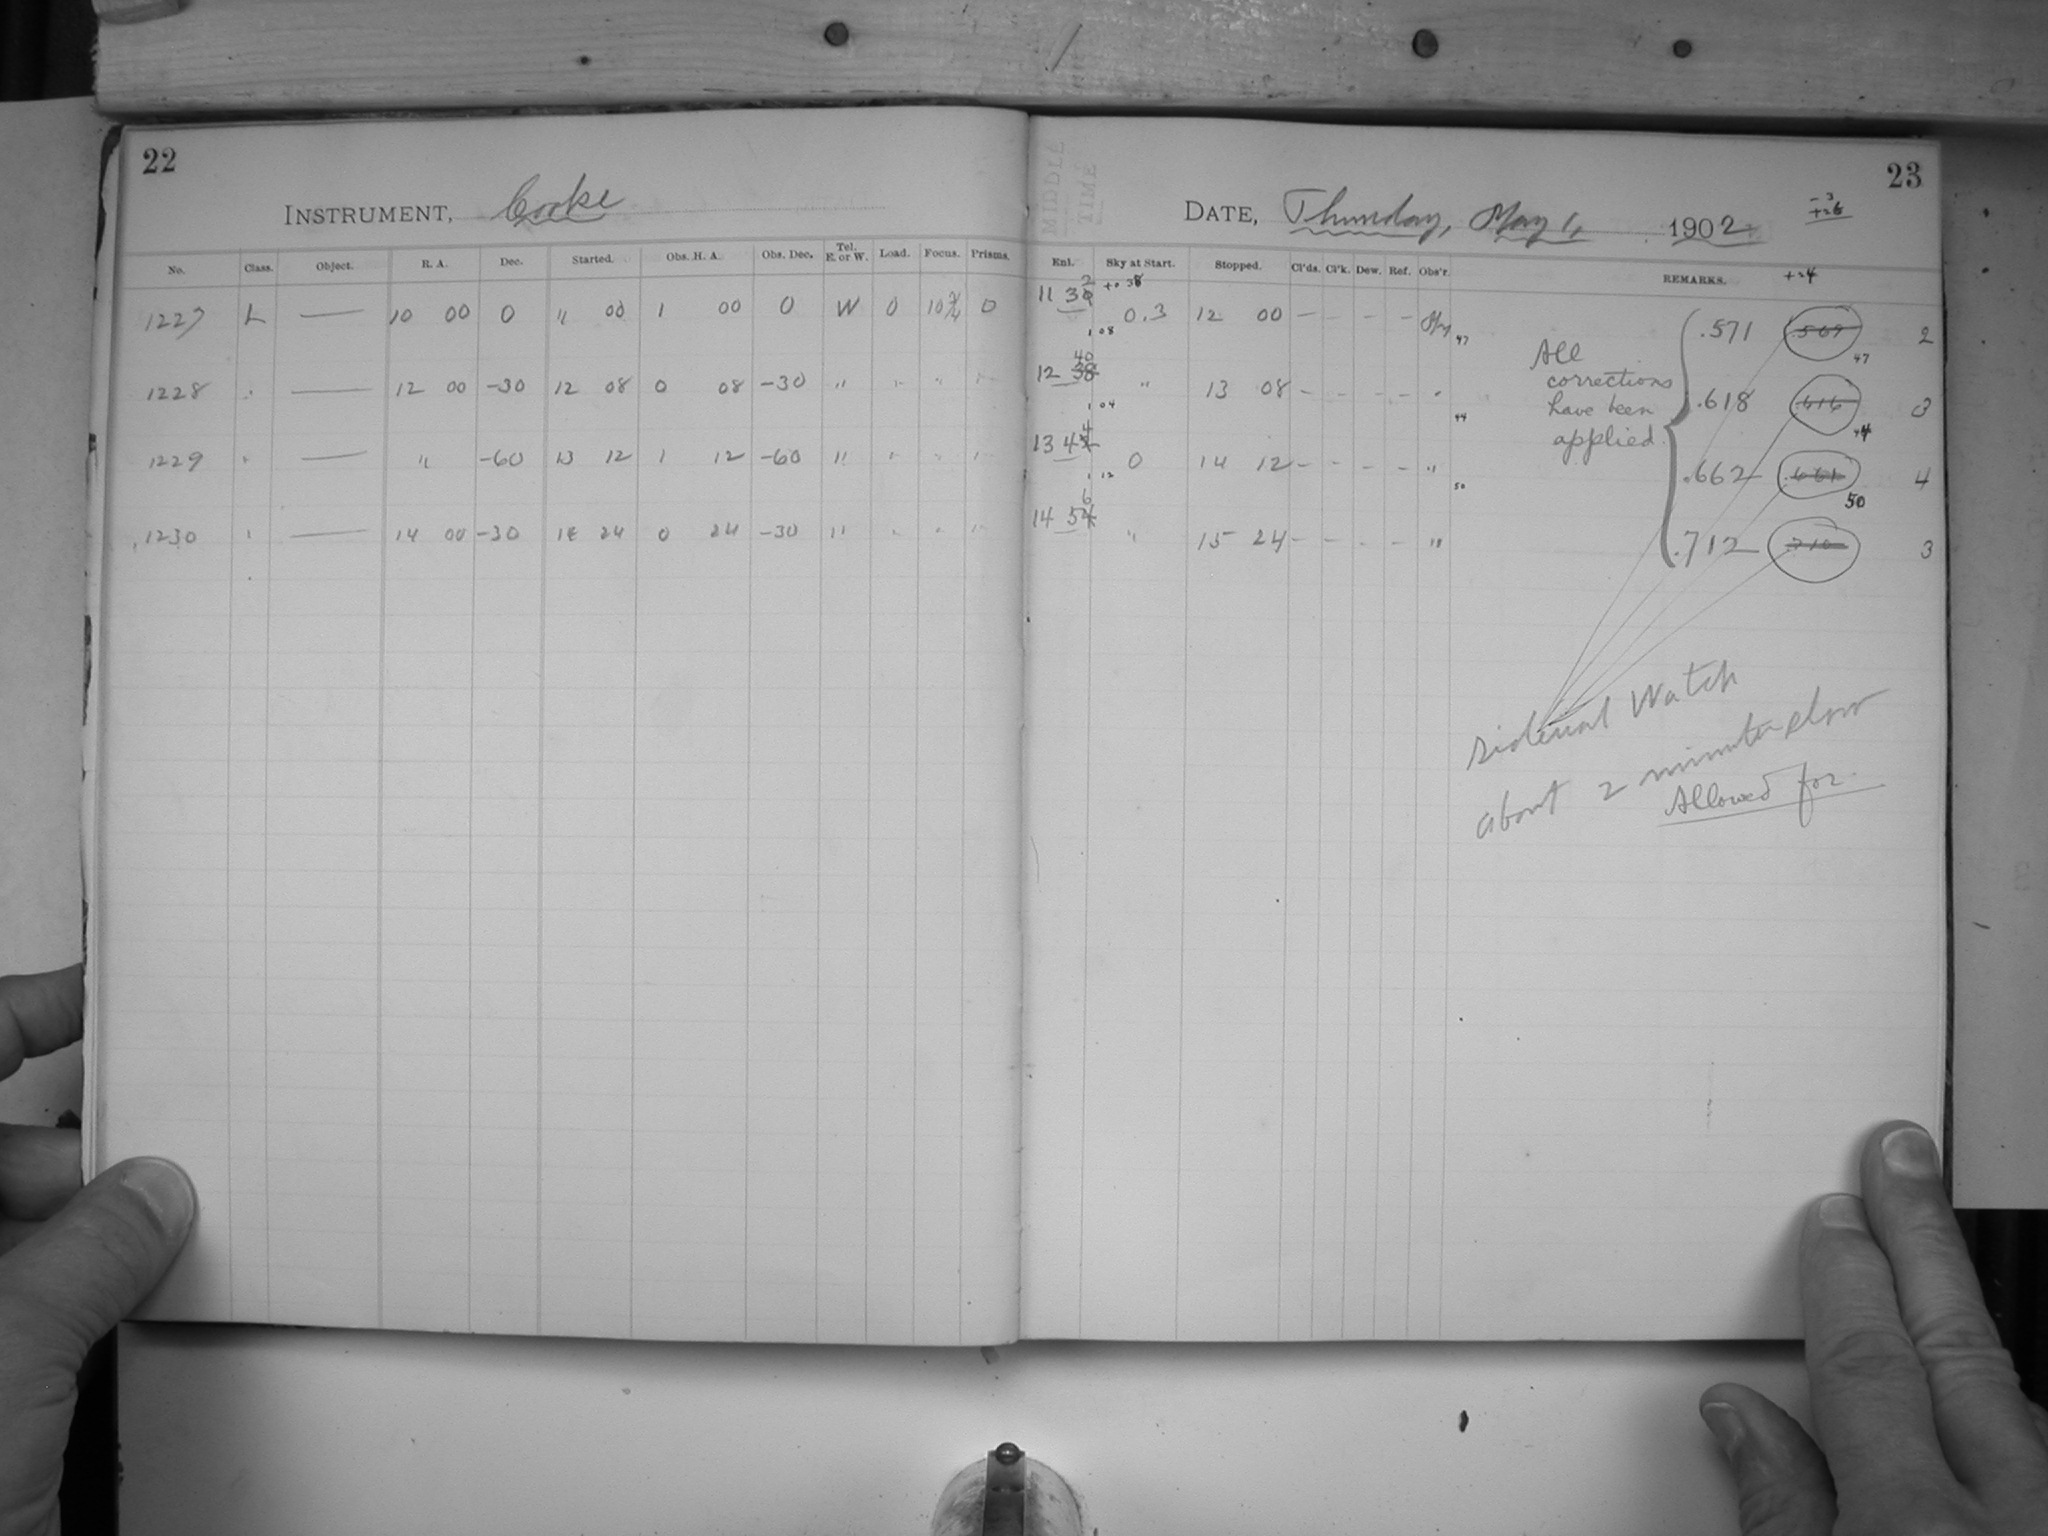 22
INSTRUMENT, Cooke
No. Class. Object. R. A. Dec. Started. Obs. H. A. Obs. Dec. Tel. E. or W. Load. Focus. Prisms.
1227 L — 10 00 0 11 00 1 00 0 W 0 10 0
1228 " — 12 00 -30 12 08 0 08 -30 " " " "
1229 " — " -60 13 12 1 12 -60 " " " "
1230 " — 14 00 -30 14 24 0 24 -30 " " " "
23
MIDDLE
TIME
DATE, Thursday, May 1, 1902
-3
+26
+24
Enl. Sky at Start. Stopped. Cl'ds. Cl'k. Dew. Ref. Obs'r. REMARKS.
+0 38
11 32 0.3 12 00 — — — — 47 .571 .569 2
1 08
47
12 40 " 13 08 — — — — " 44 .618 .616 3
1 04
44
13 44 0 14 12 — — — — " 50 .662 .661 4
1 12
50
14 56 " 15 24 — — — — " .712 .710 3
All
corrections
have been
applied.
sidereal Watch
about 2 minutes slow
Allowed for.